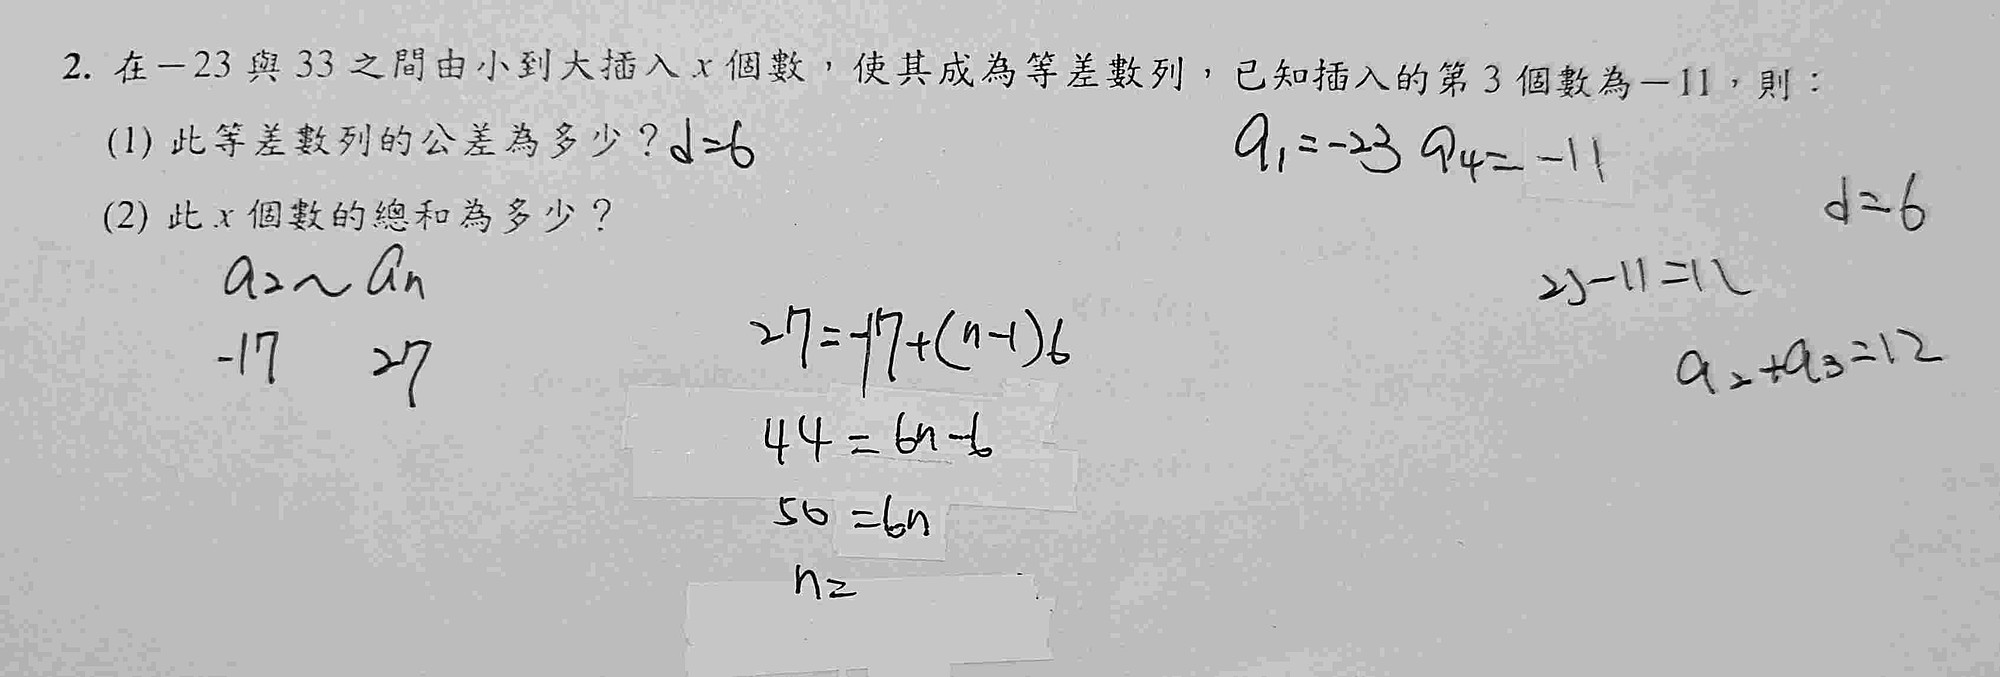 2. 在－23 與 33 之間由小到大插入 x 個數，使其成為等差數列，已知插入的第 3 個數為－11，則：
(1) 此等差數列的公差為多少？d=6
a₁=-23 a₄=-11
d=6
(2) 此 x 個數的總和為多少？
a₂~aₙ
-17 27
23-11=12
a₂+a₃=12
27=-17+(n-1)6
44=6n-6
50=6n
n=